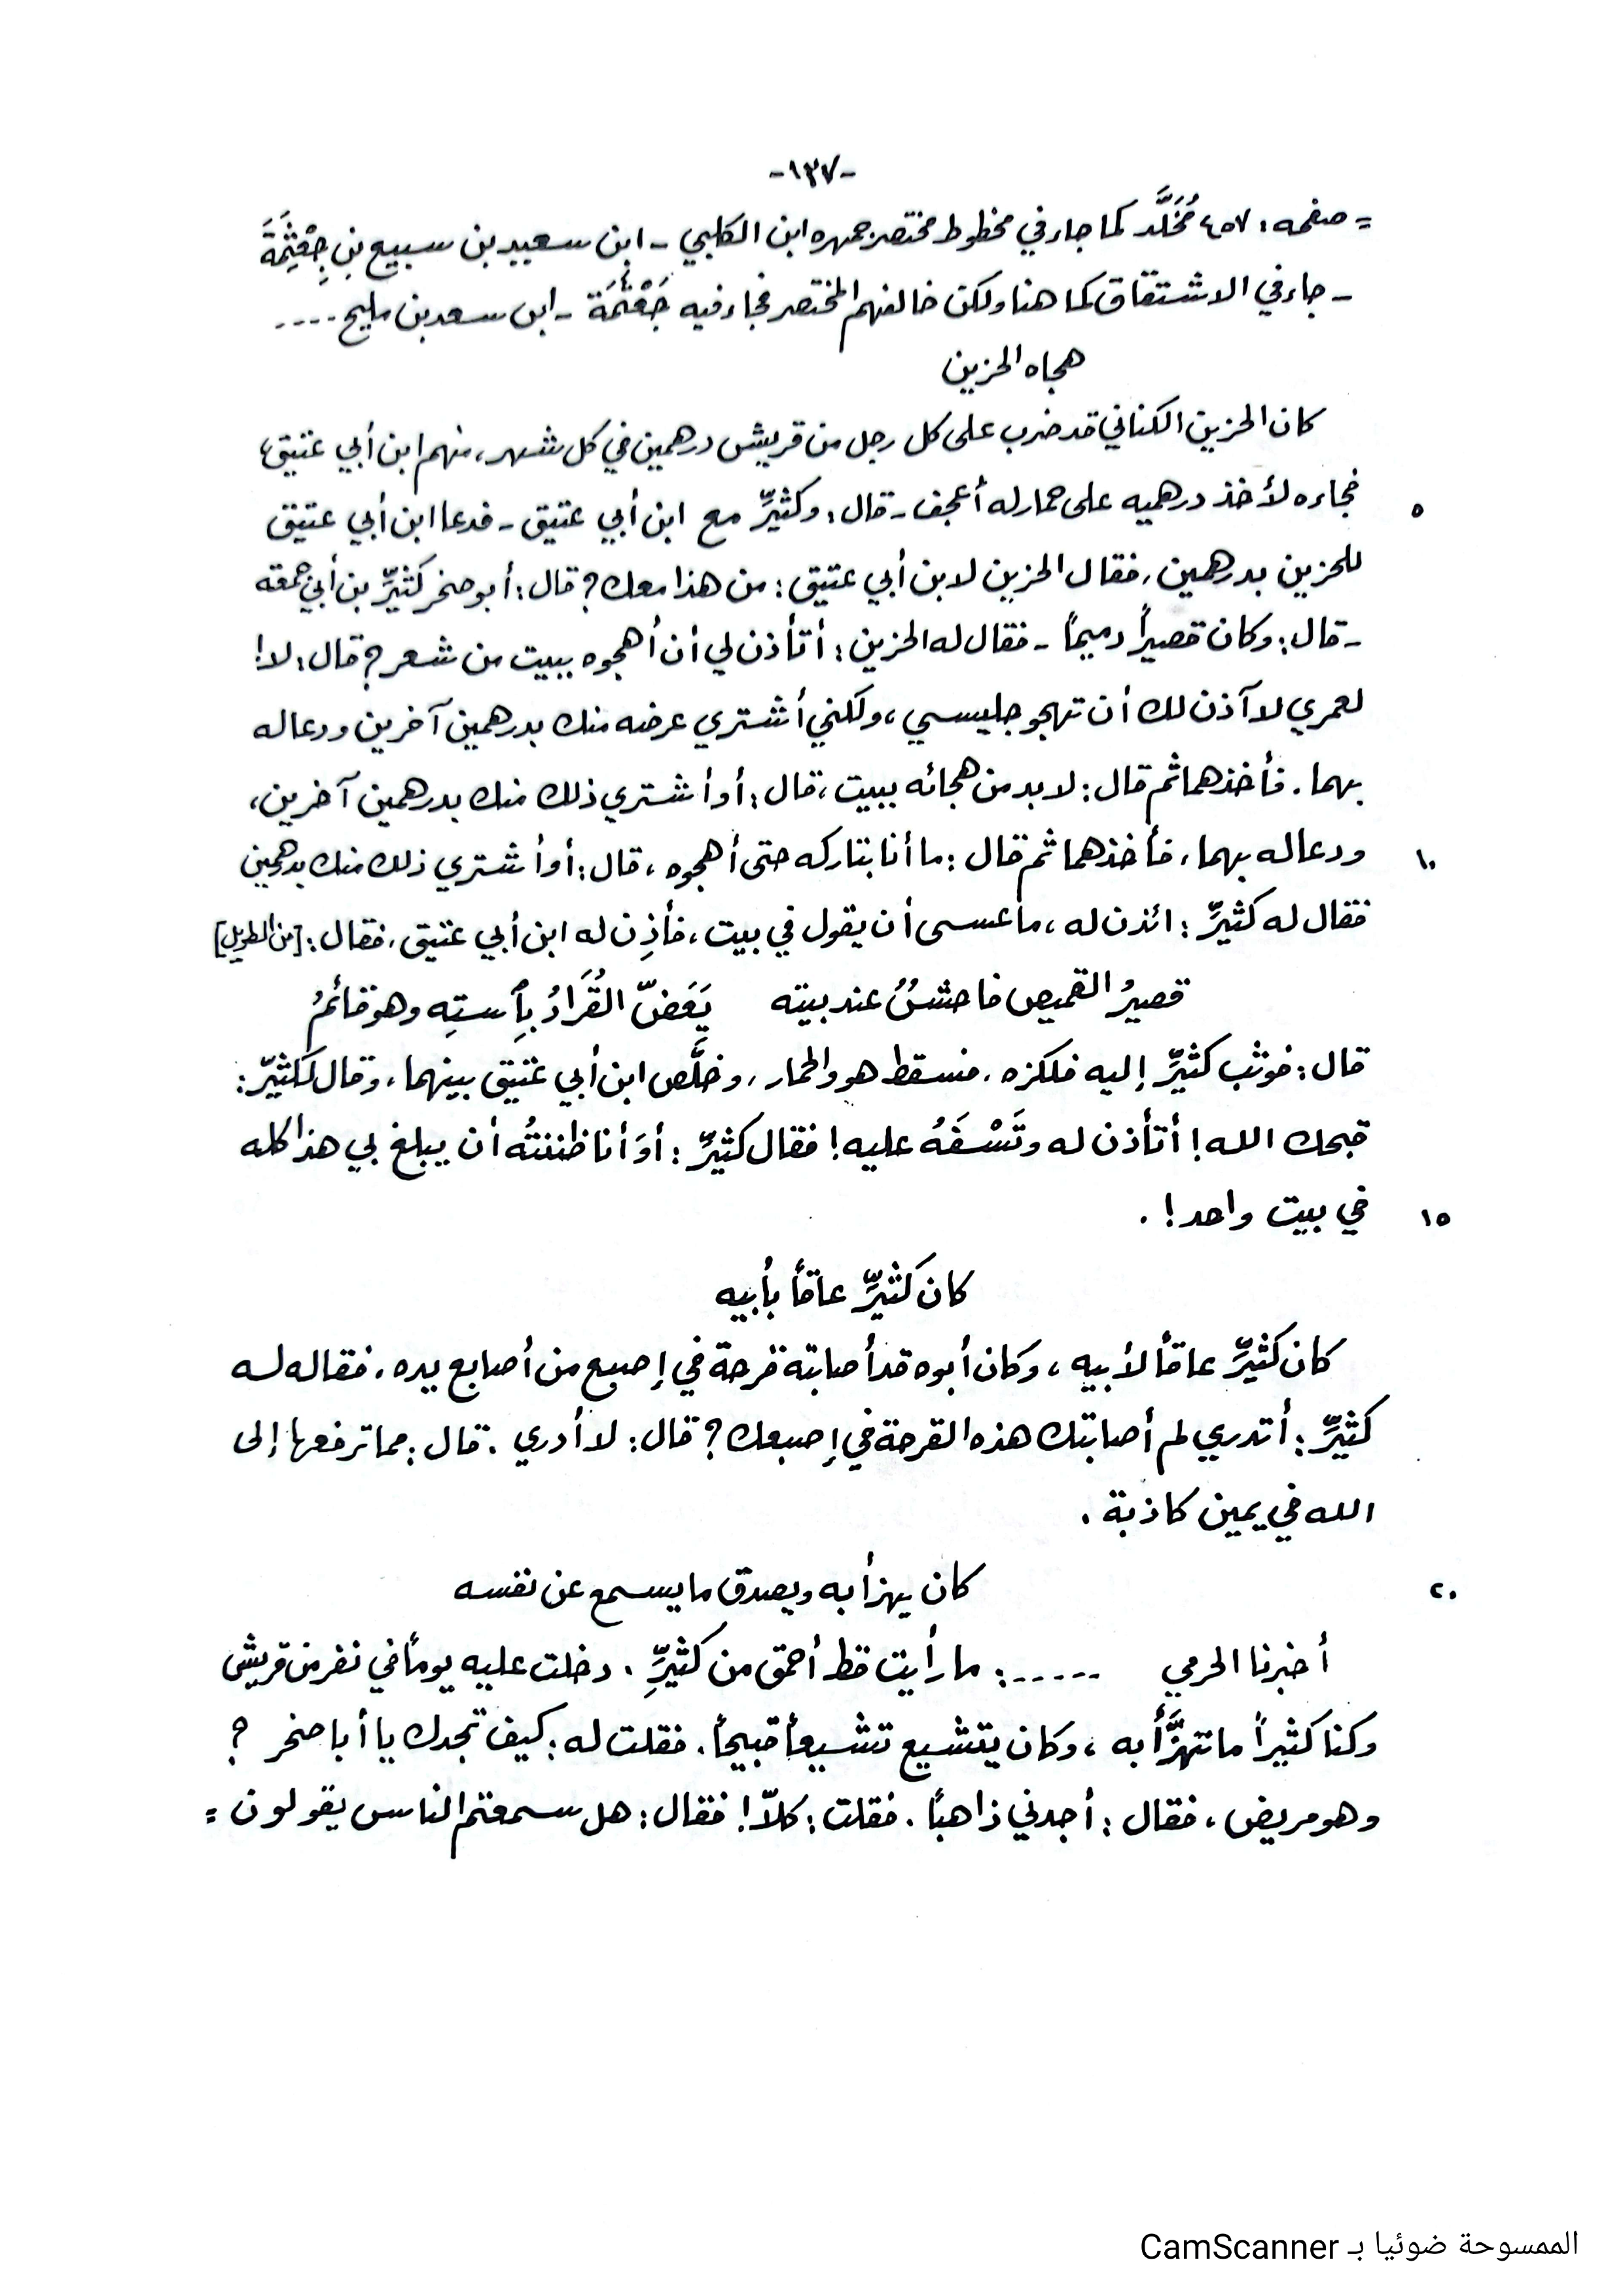 -١٣٧-
= صفحه: ٤٥٧ مُخَلَّد كما جاء في مخطوط مختصر جمهره ابن الكلبي - ابن سعيد بن سبيع بنِ جِعْثِمَةَ
- جاء في الاشتقاق كما هنا ولكن خالفهم المختصر فجاء فيه جَعْثُمَة - ابن سعد بن مليح ....
هجاه الحزين
كان الحزين الكناني قد ضرب على كل رجل من قريش درهمين في كل شهر، منهم ابن أبي عتيق،
٥ فجاءه لأخذ درهميه على حمار له أعجف - قال: وكثيِّر مع ابن أبي عتيق - فدعا ابن أبي عتيق
للحزين بدرهمين، فقال الحزين لابن أبي عتيق: من هذا معك؟ قال: أبو صخر كثيِّر بن أبي جمعة
- قال: وكان قصيراً دميماً - فقال له الحزين: أتأذن لي أن أهجوه ببيت من شعر؟ قال: لا!
لعمري لا آذن لك أن تهجو جليسي، ولكني أشتري عرضه منك بدرهمين آخرين ودعا له
بهما. فأخذهما ثم قال: لا بد من هجائه ببيت، قال: أو أشتري ذلك منك بدرهمين آخرين،
١٠ ودعا له بهما، فأخذهما ثم قال: ما أنا بتاركه حتى أهجوه، قال: أو أشتري ذلك منك بدرهمين
فقال له كثيِّر: ائذن له، ما عسى أن يقول في بيت، فأذِن له ابن أبي عتيق، فقال: [من الطويل]
قصيرُ القميص فاحشٌ عند بيته يَعَضّ القُرَادُ بِٱستِه وهو قائمُ
قال: فوثب كثيِّر إليه فلكزه، فسقط هو والحمار، وخلَّص ابن أبي عتيق بينهما، وقال لكثيّر:
قبحك الله! أتأذن له وتَسْفَهُ عليه! فقال كثيِّر: أوَ أنا ظننتُه أن يبلغ بي هذا كله
١٥ في بيت واحد! .
كان كَثيِّر عاقاً بأبيه
كان كثيِّر عاقاً لأبيه، وكان أبوه قد أصابته قرحة في إصبع من أصابع يده، فقاله له
كثيِّر: أتدري لم أصابتك هذه القرحة في إصبعك؟ قال: لا أدري. قال: مما ترفعها إلى
الله في يمين كاذبة.
٢٠ كان يهزأ به ويصدق ما يسمع عن نفسه
أخبرنا الحرمي .....: ما رأيت قط أحمق من كثيِّرِ. دخلت عليه يوماً في نفر من قريش
وكنا كثيراً ما نتهزَّأ به، وكان يتشيع تشيعاً قبيحاً. فقلت له: كيف تجدك يا أبا صخر ؟
وهو مريض، فقال: أجدني ذاهباً. فقلت: كلاّ! فقال: هل سمعتم الناس يقولون =
الممسوحة ضوئيا بـ CamScanner